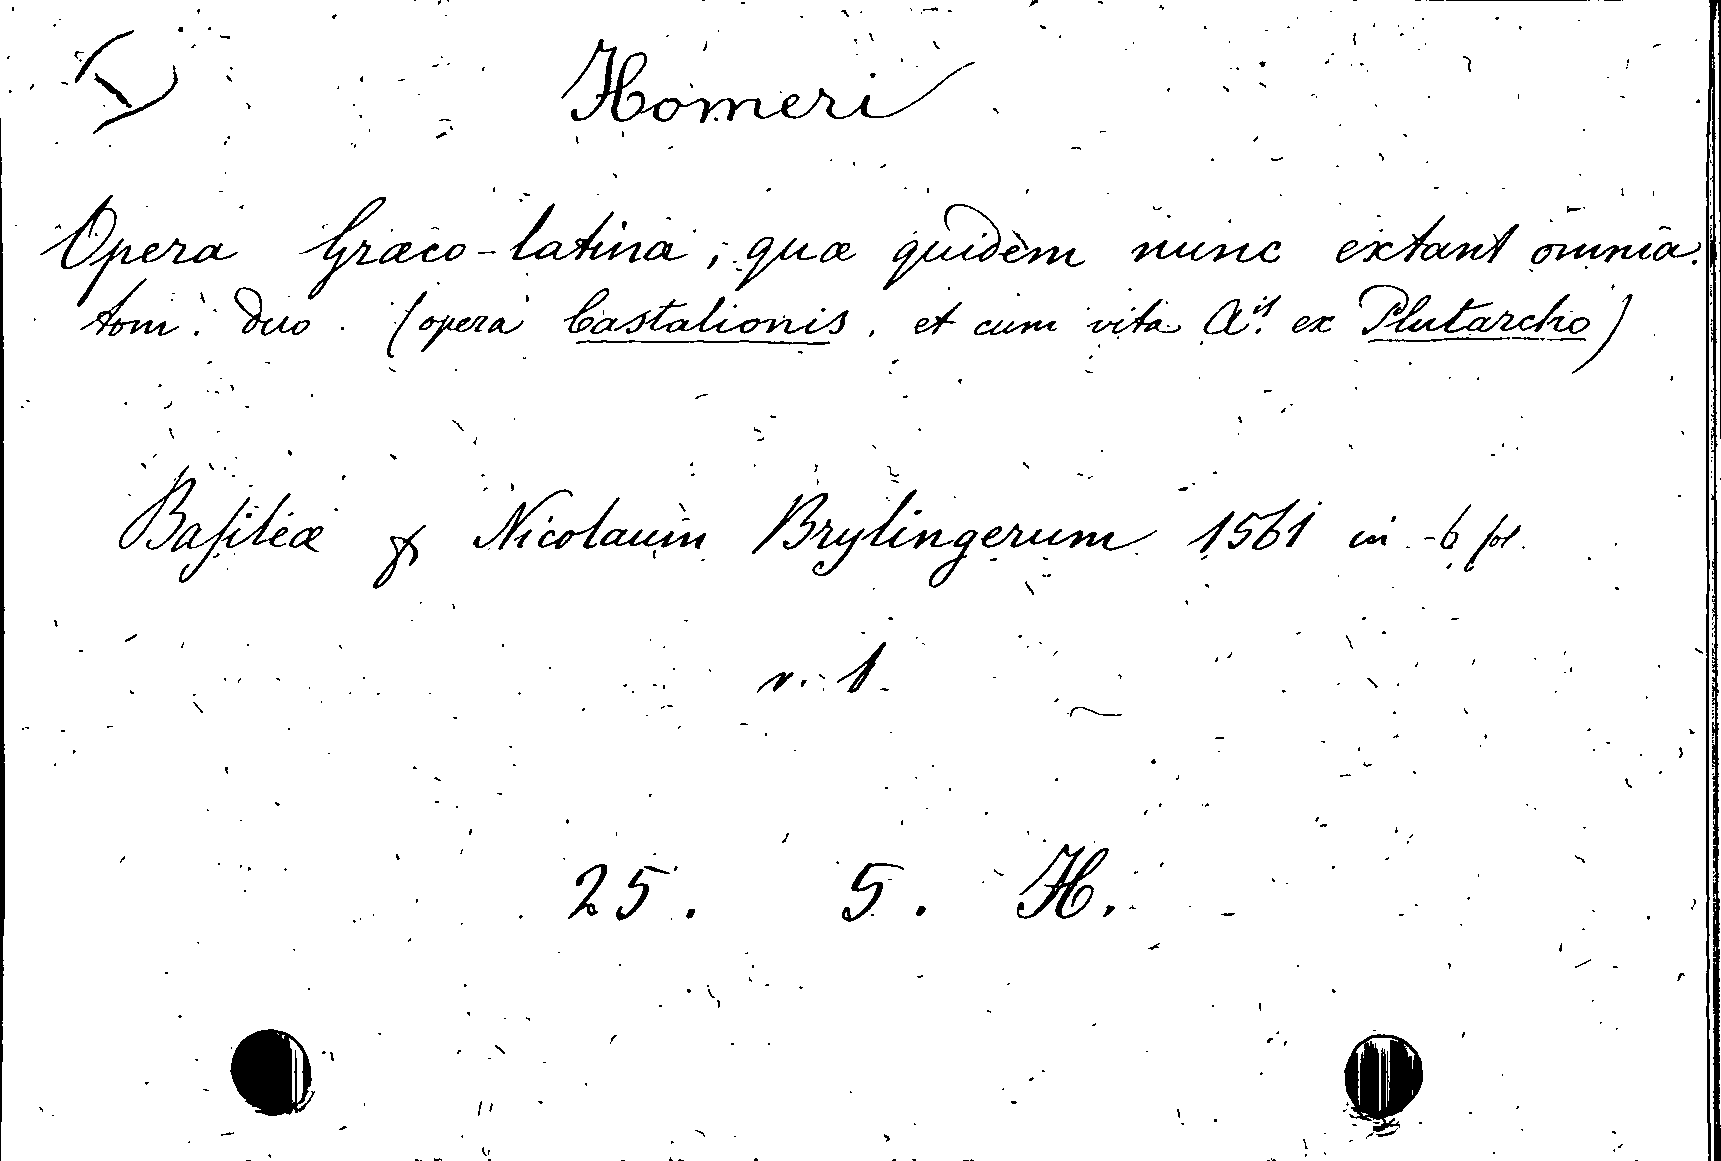 Homeri
Opera Græco-latina, quæ quidem nunc extant omnia.
tom. duo. (opera Castalionis. et cum vita A.is ex Plutarcho)
Basileæ Nicolaum Brylingerum 1561 in-6 fol.
v. 1
25. 5. H.